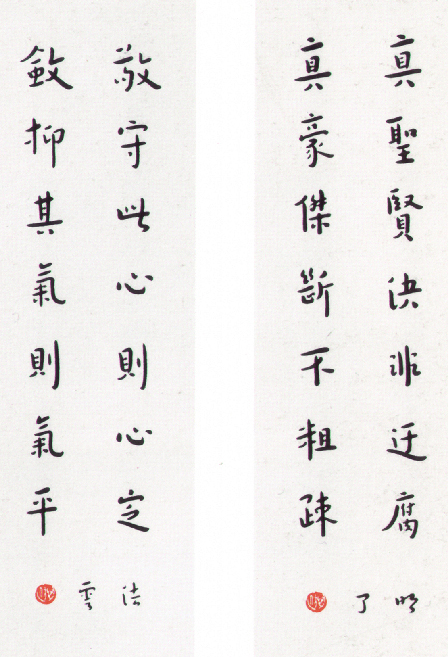 真聖賢決非迂腐
真豪傑斷不粗疎
明了
敬守此心則心定
斂抑其氣則氣平
法雲